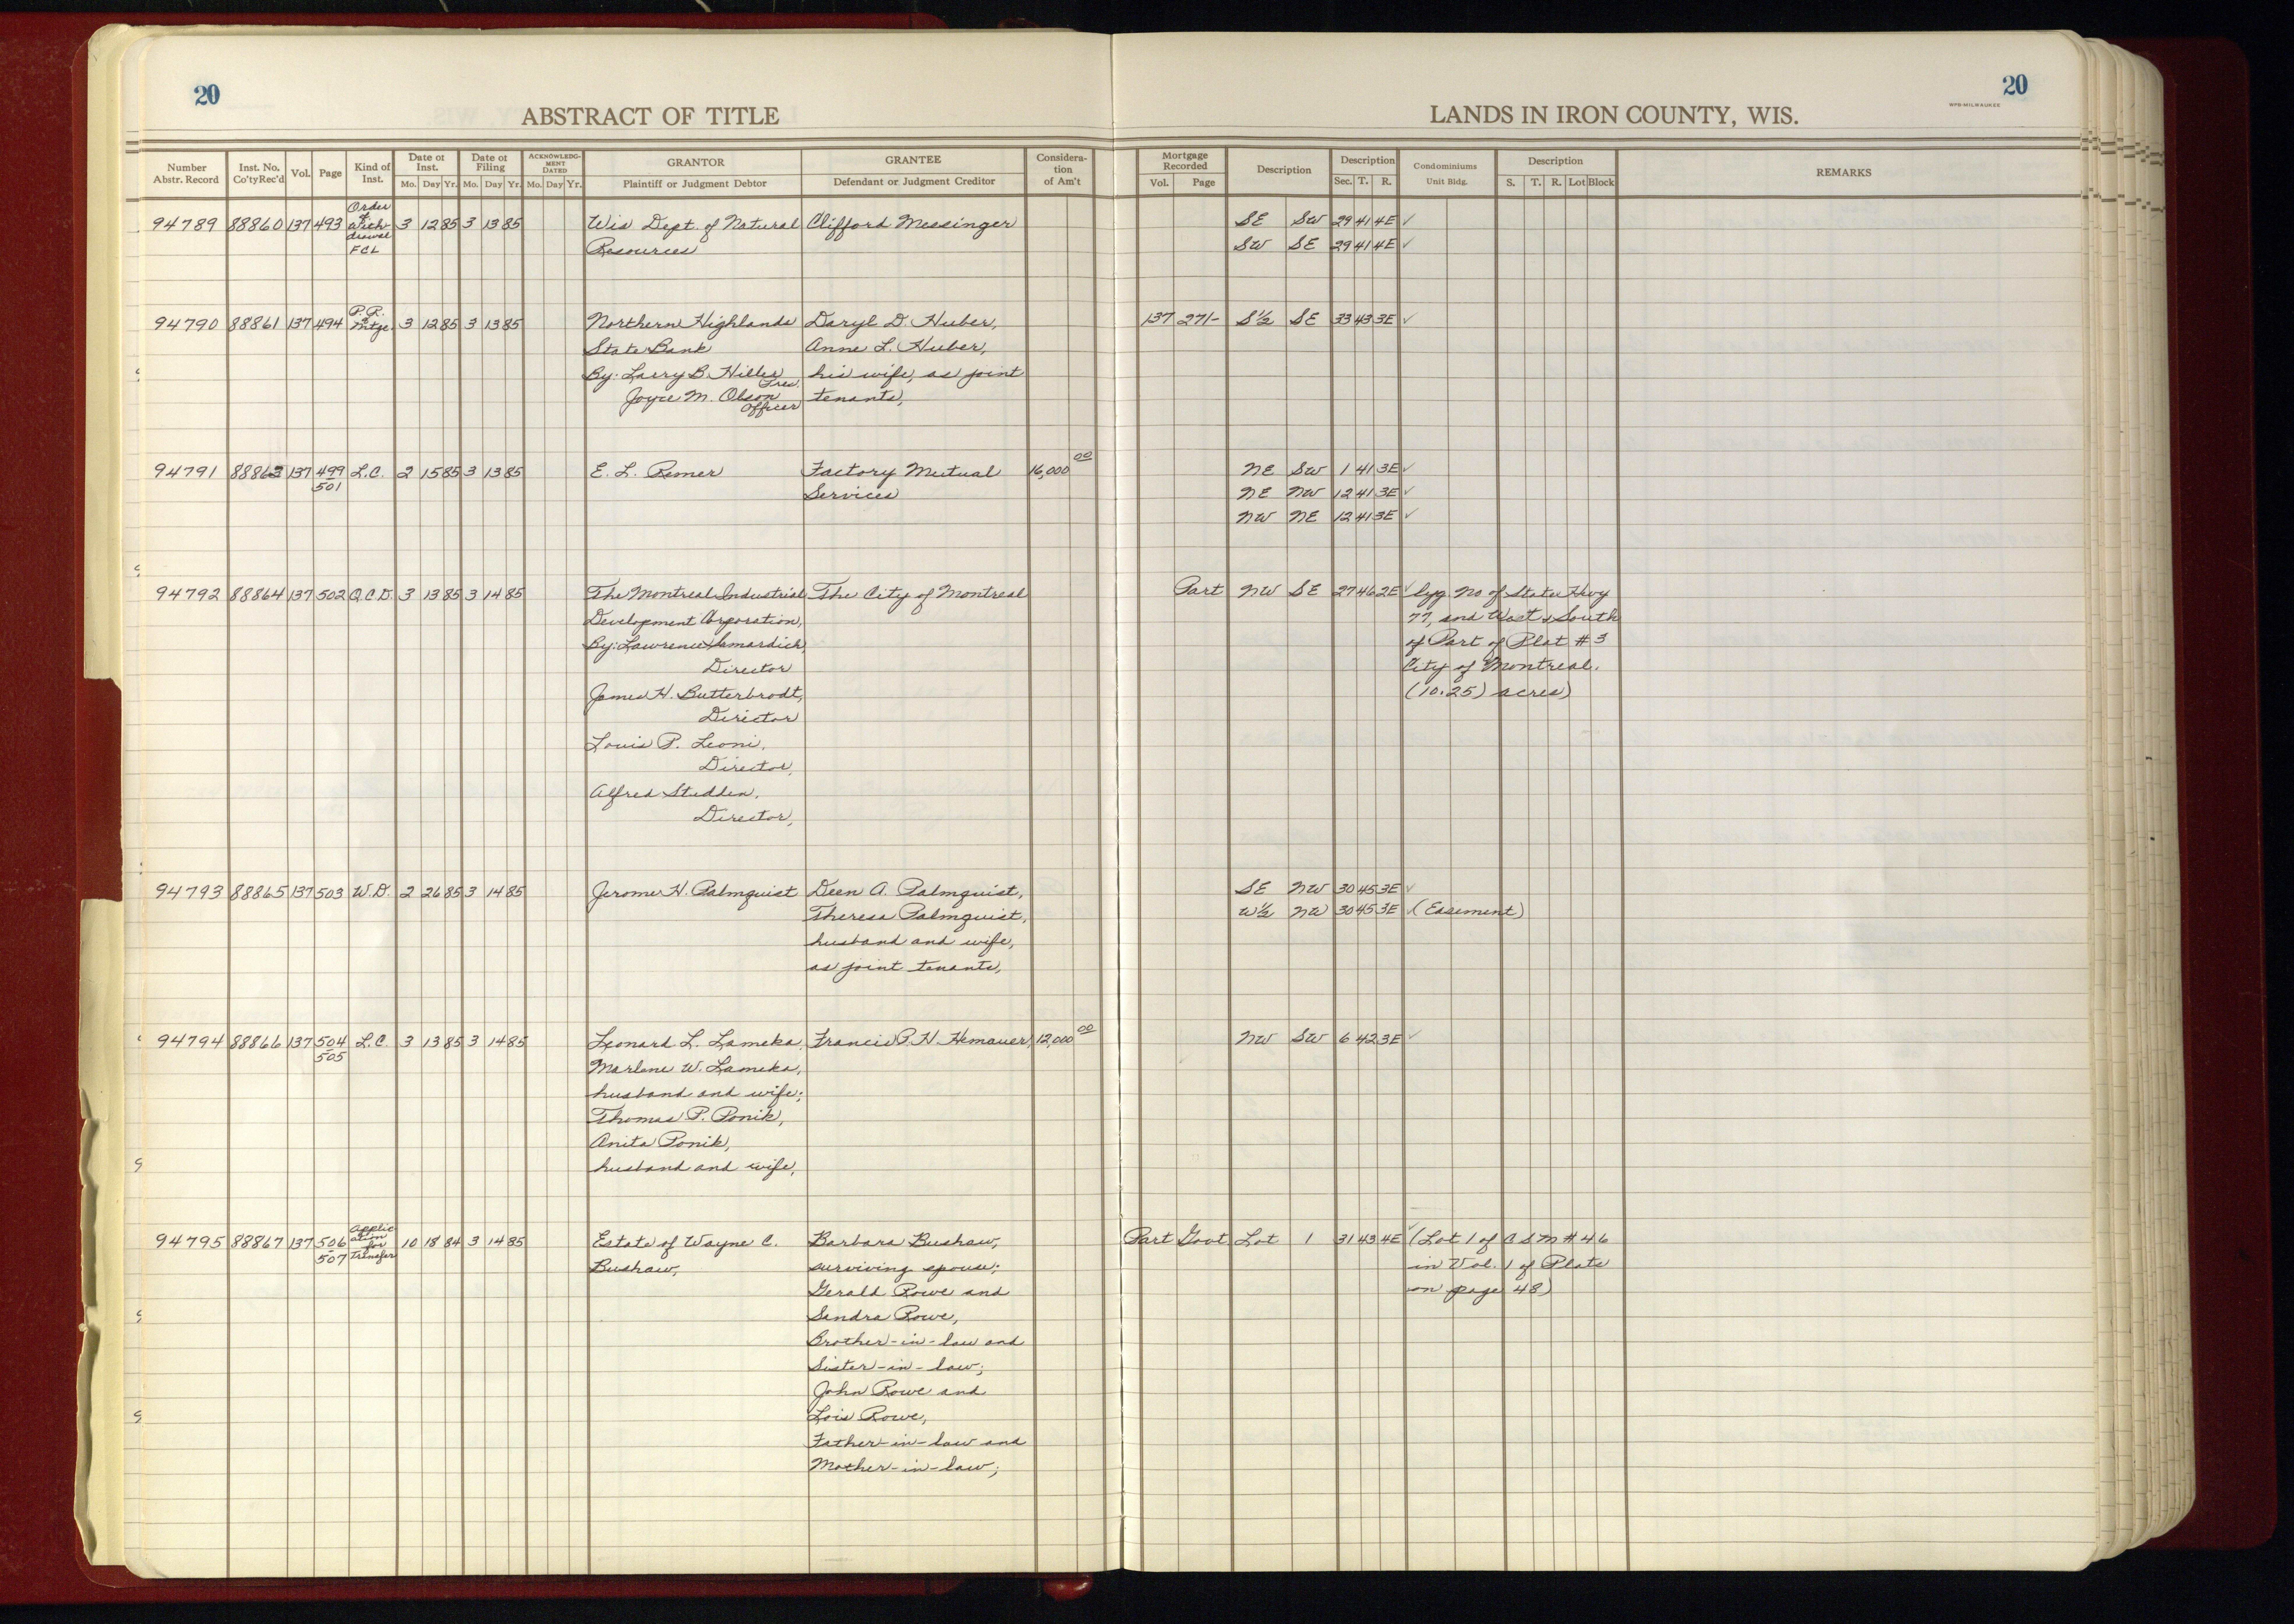 20
ABSTRACT OF TITLE
LANDS IN IRON COUNTY, WIS.
WPB-MILWAUKEE
20
Number Abstr. Record
Inst. No. Co'ty Rec'd
Vol.
Page
Kind of Inst.
Date of Inst.
Mo. Day Yr.
Date of Filing
Mo. Day Yr.
ACKNOWLEDG-MENT DATED
Mo. Day Yr.
GRANTOR
Plaintiff or Judgment Debtor
GRANTEE
Defendant or Judgment Creditor
Considera-tion of Am't
Mortgage Recorded
Vol. Page
Description
Description
Sec. T. R.
Condominiums
Unit Bldg.
Description
S. T. R. Lot Block
REMARKS
94789 88860 137 493 Order of With drawal FCL 3 12 85 3 13 85 Wis Dept. of Natural Clifford Messinger SE SW 29 41 4E ✓
Resources SW SE 29 41 4E ✓
94790 88861 137 494 P.R. Mtge. 3 12 85 3 13 85 Northern Highlands Daryl D. Huber, 137 271- S½ SE 33 43 3E ✓
State Bank Anne L. Huber,
By: Larry B. Hiller Pres. his wife, as joint
Joyce M. Olson Officer tenants,
94791 88863 137 499 501 L.C. 2 15 85 3 13 85 E. L. Remer Factory Mutual 16,000 00 NE SW 1 41 3E ✓
Services NE NW 12 41 3E ✓
NW NE 12 41 3E ✓
94792 88864 137 502 Q.C.D. 3 13 85 3 14 85 The Montreal Industrial The City of Montreal Part NW SE 27 46 2E ✓ lyg. No of State Hwy
Development Corporation, 77, and West & South
By: Lawrence Samardich, of Part of Plat #3
Director City of Montreal.
James H. Butterbrodt, (10.25) acres)
Director
Louis P. Leoni,
Director,
Alfred Stedden,
Director,
94793 88865 137 503 W.D. 2 26 85 3 14 85 Jerome H. Palmquist Deen A. Palmquist, SE NW 30 45 3E ✓
Theresa Palmquist, W½ NW 30 45 3E ✓ (Easement)
husband and wife,
as joint tenants,
94794 88866 137 504 505 L.C. 3 13 85 3 14 85 Leonard L. Lameka, Francis P. H. Hemauer, 12,000 00 NW SW 6 42 3E ✓
Marlene W. Lameka,
husband and wife;
Thomas P. Ponik,
Anita Ponik,
husband and wife,
94795 88867 137 506 507 Applic ation for Transfer 10 18 84 3 14 85 Estate of Wayne C. Barbara Bushaw, Part Govt Lot 1 31 43 4E ✓ (Lot 1 of CSM #46
Bushaw, surviving spouse; in Vol. 1 of Plats
Gerald Rowe and on page 48)
Sandra Rowe,
Brother-in-law and
Sister-in-law;
John Rowe and
Lois Rowe,
Father-in-law and
Mother-in-law;